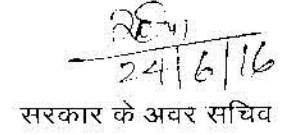 24/6/16
सरकार के अवर सचिव